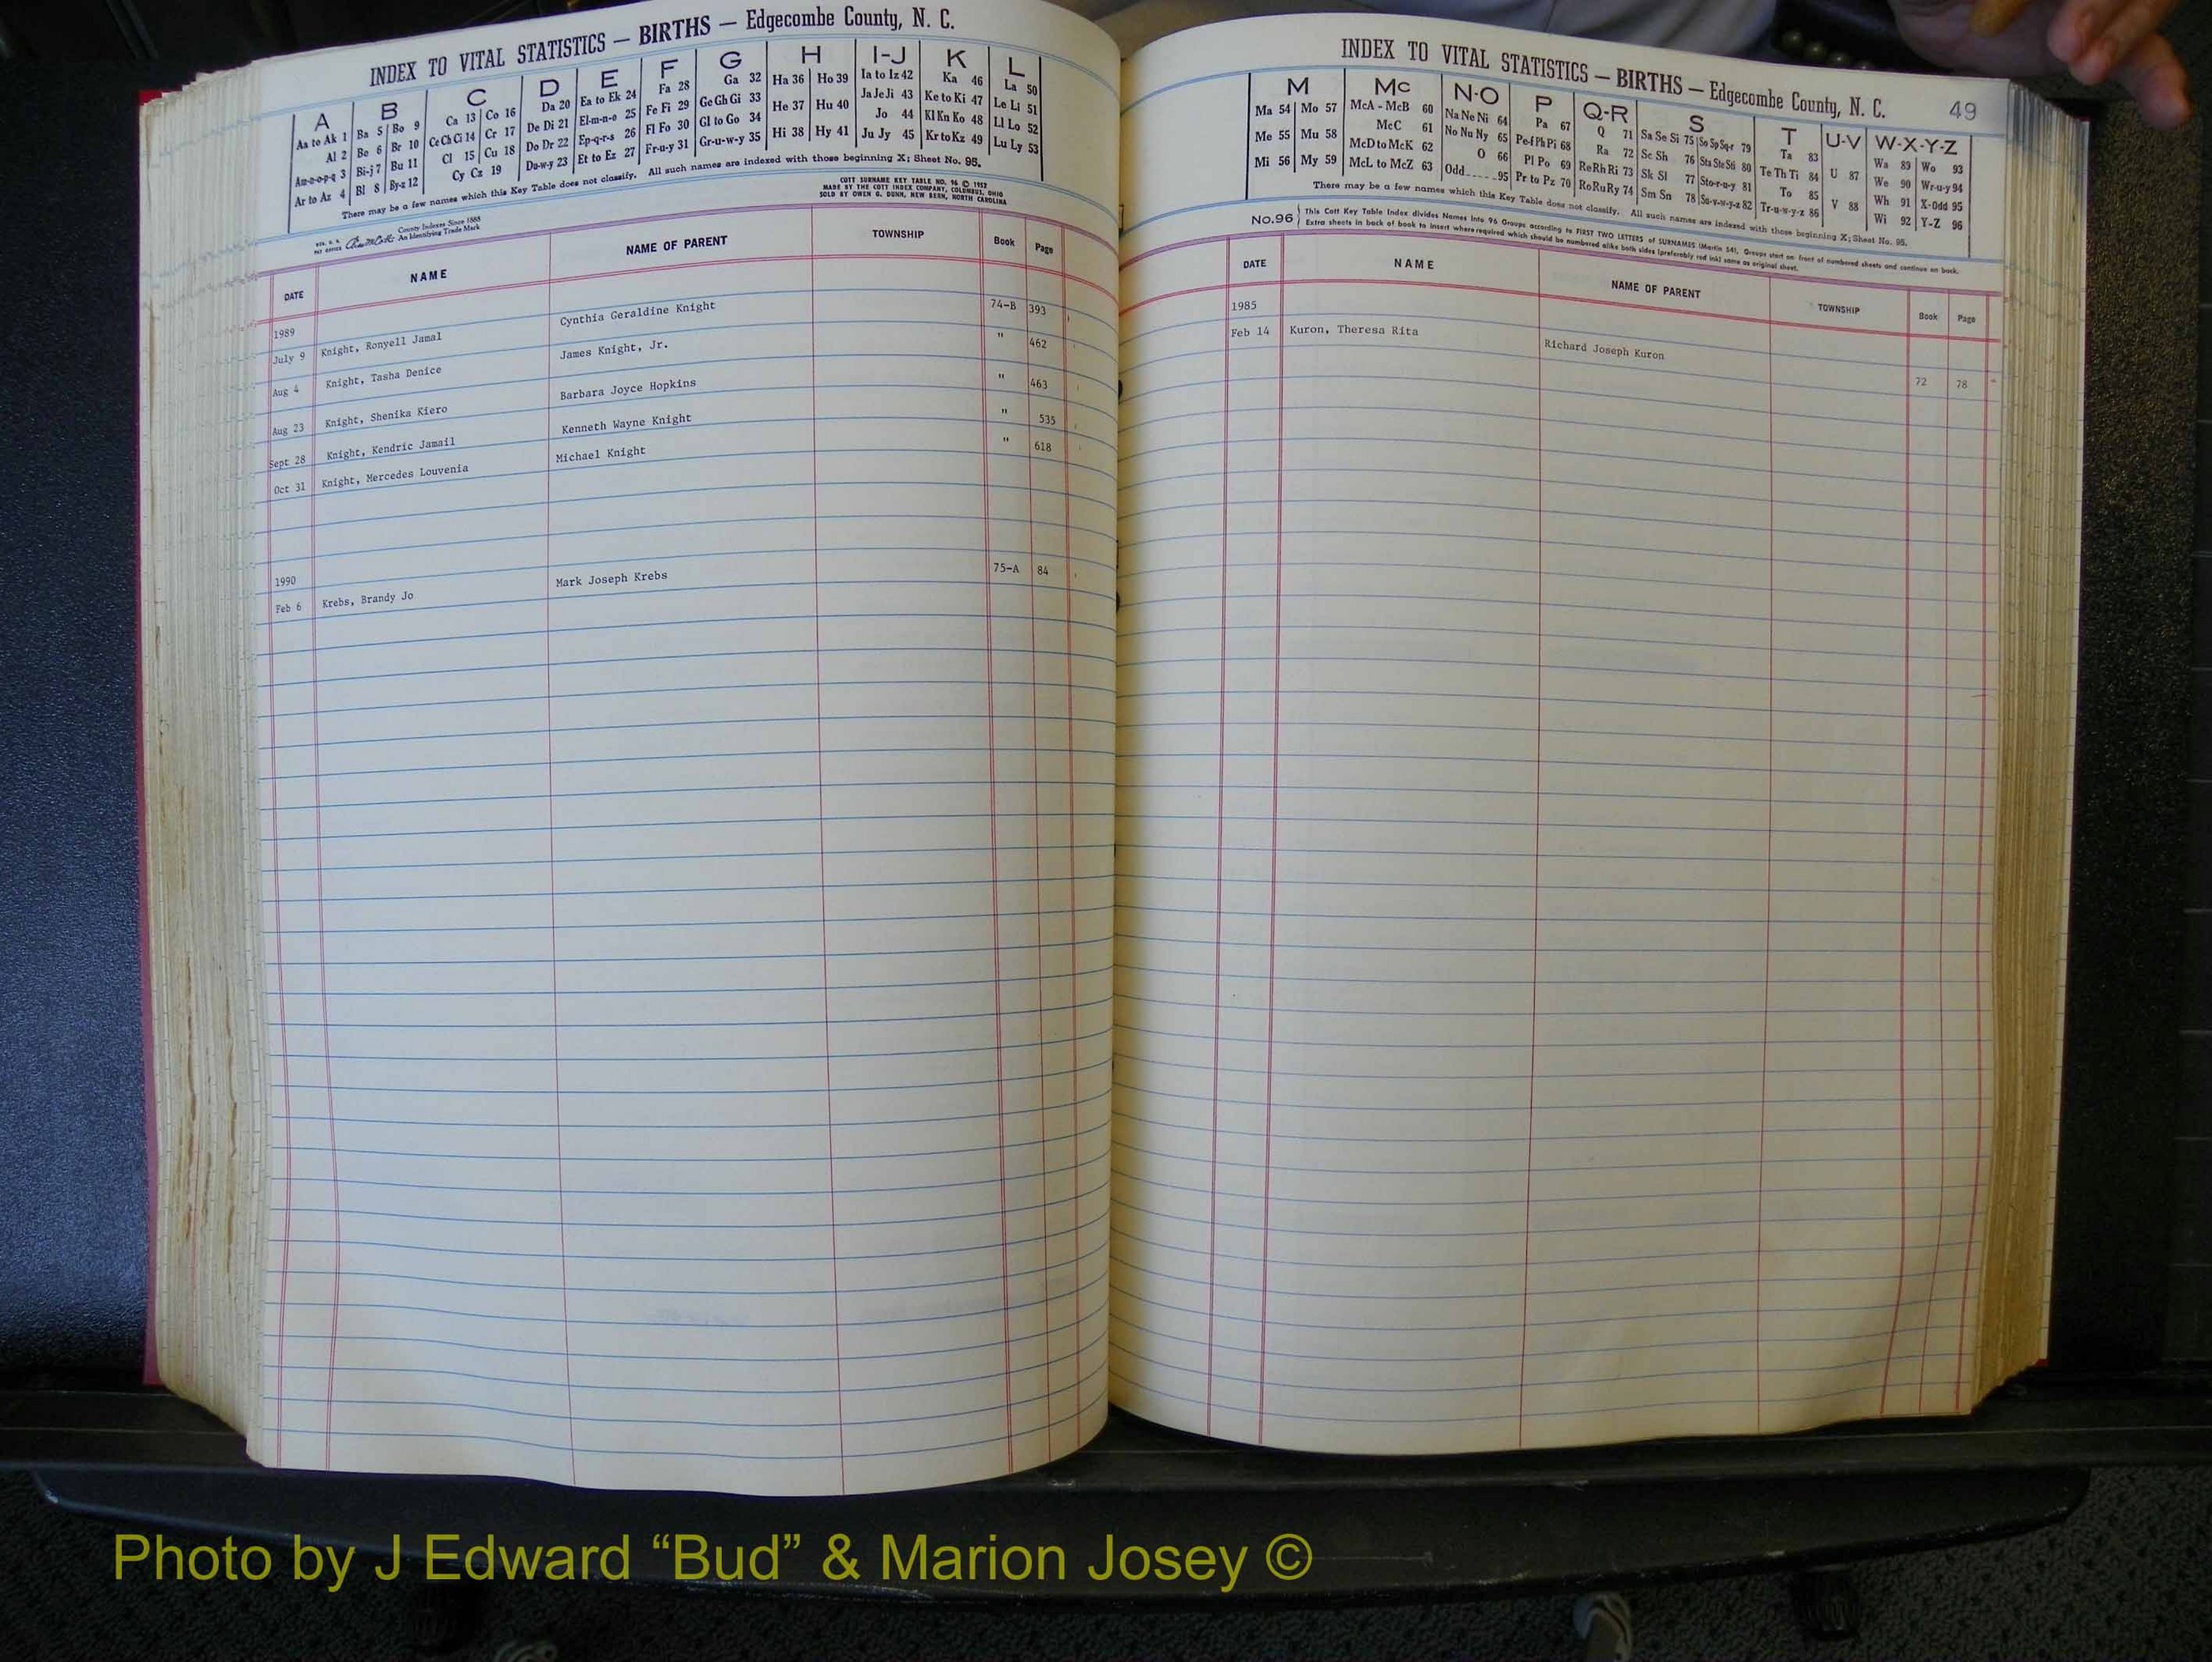 INDEX TO VITAL STATISTICS — BIRTHS — Edgecombe County, N. C.
A B C D E F G H I-J K L
Aa to Ak 1 Ba 5 Bo 9 Ca 13 Co 16 Da 20 Ea to Ek 24 Fa 28 Ga 32 Ha 36 Ho 39 Ia to Iz 42 Ka 46 La 50
Al 2 Be 6 Br 10 Ce Ch Ci 14 Cr 17 De Di 21 El-m-n-o 25 Fe Fi 29 Ge Gh Gi 33 He 37 Hu 40 Ja Je Ji 43 Ke to Ki 47 Le Li 51
Am-n-o-p-q 3 Bi-j 7 Bu 11 Cl 15 Cu 18 Do Dr 22 Ep-q-r-s 26 Fl Fo 30 Gl to Go 34 Hi 38 Hy 41 Jo 44 Kl Kn Ko 48 Ll Lo 52
Ar to Az 4 Bl 8 By-z 12 Cy Cz 19 Du-w-y 23 Et to Ez 27 Fr-u-y 31 Gr-u-w-y 35 Ju Jy 45 Kr to Kz 49 Lu Ly 53
There may be a few names which this Key Table does not classify. All such names are indexed with those beginning X; Sheet No. 95.
County Indexes Since 1888
An Identifying Trade Mark
COTT SURNAME KEY TABLE NO. 96 © 1957
MADE BY THE COTT INDEX COMPANY, COLUMBUS, OHIO
SOLD BY OWEN G. DUNN, NEW BERN, NORTH CAROLINA
DATE NAME NAME OF PARENT TOWNSHIP Book Page
1989
July 9 Knight, Ronyell Jamal Cynthia Geraldine Knight 74-B 393
Aug 4 Knight, Tasha Denice James Knight, Jr. " 462
Aug 23 Knight, Shenika Kiero Barbara Joyce Hopkins " 463
Sept 28 Knight, Kendric Jamail Kenneth Wayne Knight " 535
Oct 31 Knight, Mercedes Louvenia Michael Knight " 618
1990
Feb 6 Krebs, Brandy Jo Mark Joseph Krebs 75-A 84
INDEX TO VITAL STATISTICS — BIRTHS — Edgecombe County, N. C. 49
M Mc N-O P Q-R S T U-V W-X-Y-Z
Ma 54 Mo 57 McA - McB 60 Na Ne Ni 64 Pa 67 Q 71 Sa Se Si 75 So Sp Sq-r 79 Ta 83 U 87 Wa 89 Wo 93
Me 55 Mu 58 McC 61 No Nu Ny 65 Pe-f Ph Pi 68 Ra 72 Sc Sh 76 Sta Ste Sti 80 Te Th Ti 84 V 88 We 90 Wr-u-y 94
Mi 56 My 59 McD to McK 62 O 66 Pl Po 69 Re Rh Ri 73 Sk Sl 77 Sto-r-u-y 81 To 85 Wh 91 X-Odd 95
McL to McZ 63 Odd 95 Pr to Pz 70 Ro Ru Ry 74 Sm Sn 78 Su-v-w-y-z 82 Tr-u-w-y-z 86 Wi 92 Y-Z 96
There may be a few names which this Key Table does not classify. All such names are indexed with those beginning X; Sheet No. 95.
No.96 This Cott Key Table Index divides Names into 96 Groups according to FIRST TWO LETTERS of SURNAMES (Martin 54). Groups start on front of numbered sheets and continue on back.
Extra sheets in back of book to insert where required which should be numbered alike both sides (preferably red ink) same as original sheet.
DATE NAME NAME OF PARENT TOWNSHIP Book Page
1985
Feb 14 Kuron, Theresa Rita Richard Joseph Kuron 72 78
Photo by J Edward “Bud” & Marion Josey ©